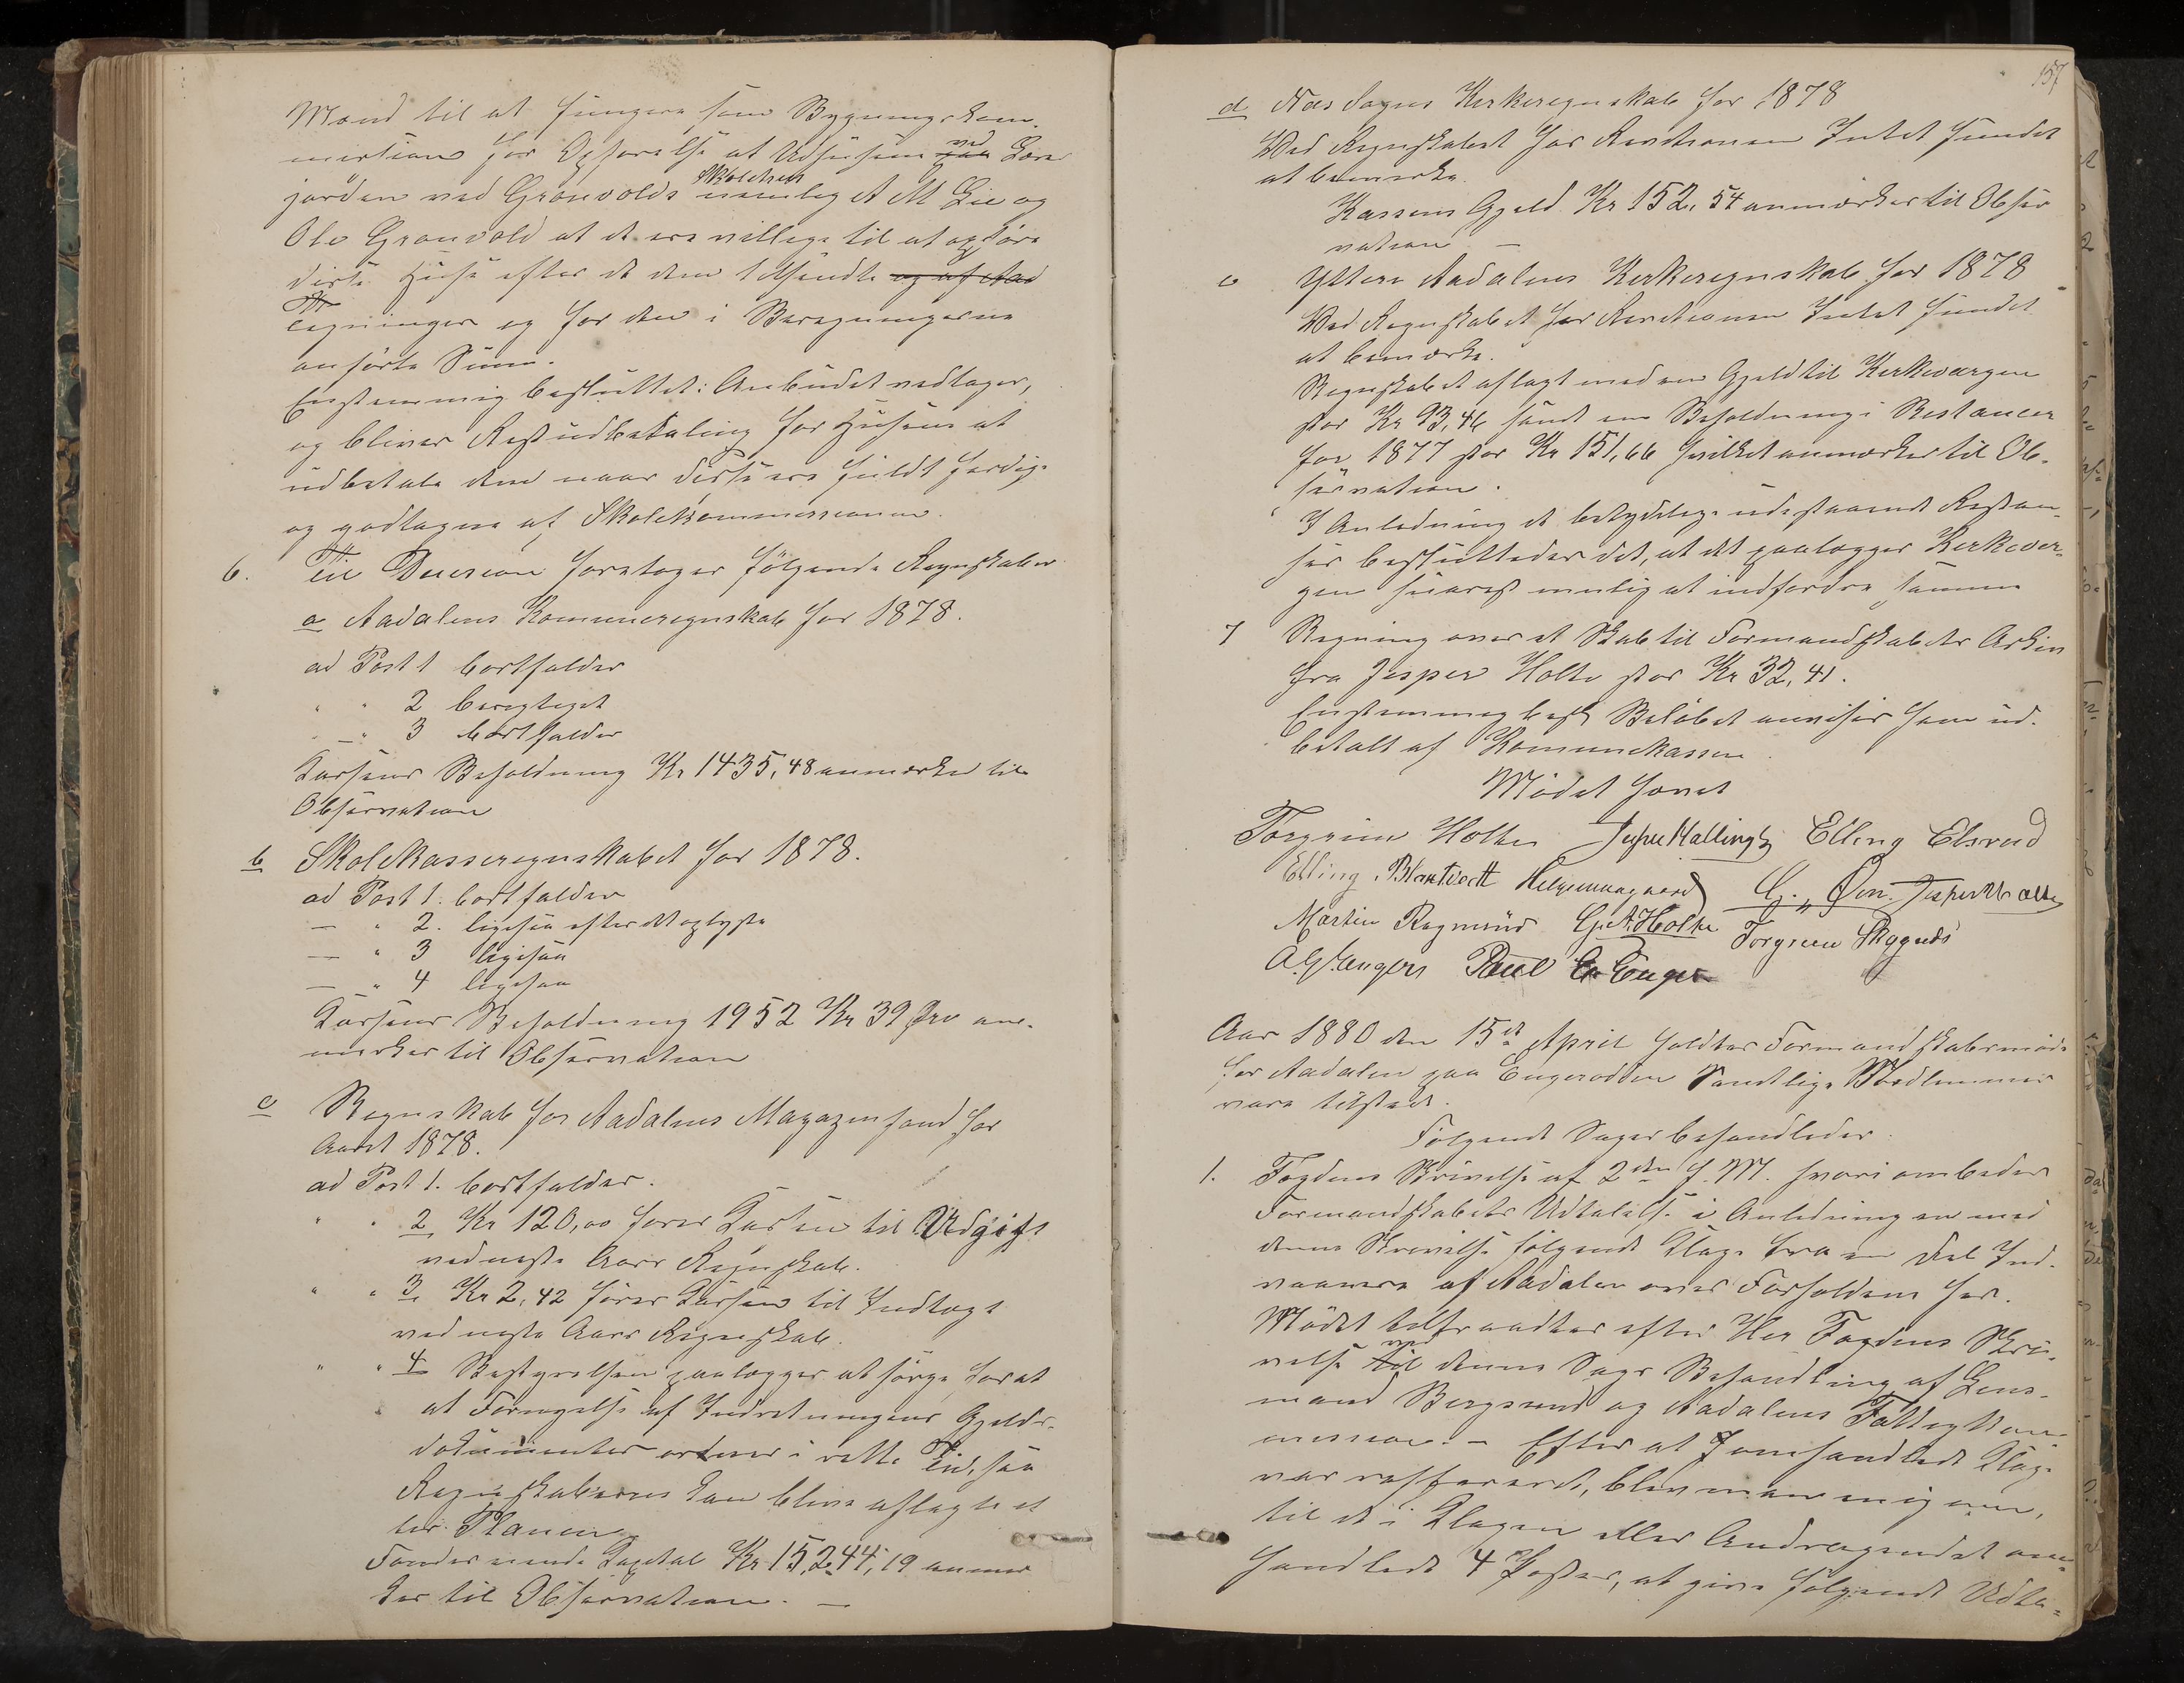 Mænd til at fungere som Bygningskom-
mission for Opførelse af Udhusene paa ved Lærer
jorden ved Grønvolds Skolehus nemlig A M Lie og
Ole Grønvold at de ere villige til at opføre
disse Huse efter de dem tilsendte og af
Tegninger og for den i Beregningerne
anførte Sum.
Enstemmig besluttet: Anbudet vedtages,
og bliver Restudbetaling for Husene at
udbetale dem naar disse ere fuldt færdige
og godtagne af Skolekommissionen.
6. Til Decision foretoges følgende Regnskaber
a Aadalens Kommuneregnskab for 1878.
ad Post 1 bortfalder
" " 2 berigtiget
" " 3 bortfalder
Kassens Beholdning Kr 1435,48 anmærkes til
Observation
b Skolekasseregnskabet for 1878.
ad Post 1. bortfalder
— " 2. ligesaa efter det oplyste
— " 3 ligesaa
— " 4 ligesaa
Kassens Beholdning 1952 Kr 39 Øre an-
mærkes til Observation
c Regnskab for Aadalens Magazinfond for
Aaret 1878.
ad Post 1. bortfalder.
" " 2 Kr 120,00 fører Kassen til Udgift
ved næste Aars Regnskab.
" " 3. Kr 2,42 fører Kassen til Indtægt
ved næste Aars Regnskab.
" " 4 Bestyrelsen paalægges at sørge for at
at Fornyelse af Indretningens Gjelds-
dokumenter ordnes i rette Tid, saa
Regnskaberne kan blive aflagte ef
ter Planen
Fondets Kapital Kr 15,244,19 anmær
kes til Observation. —
157
d Næs Sogns Kirkeregnskab for 1878
Ved Regnskabet har Revisionen Intet fundet
at bemærke.
Kassens Gjeld Kr 152,54 anmærkes til Obser
vation —
e Yttere Aadalens Kirkeregnskab for 1878
Ved Regnskabet har Revisionen Intet fundet
at bemærke.
Regnskabet aflagt med en Gjeld til Kirkeværgen
stor Kr 93,46 samt en Beholdning i Restancer
for 1877 stor Kr 151,66 hvilket anmærkes til Ob-
servation.
I Anledning de betydelige udestaaende Restan-
ser besluttedes det, at det paalægges Kirkevær-
gen snarest mulig at indfordre samme
7 Regning over et Skab til Formandskabets Arkiv
fra Jesper Holte stor Kr 32,41.
Enstemmig besl Beløbet anvises som ud-
betalt af Kommunekassen.
Mødet hævet
Torgrim Holte Jesper Hallingby Elling Elsrud
Elling Blaktvedt Helgemoagaard G. Øen. Jesper Holte
Martin Ragnrud G. A. Holte Torgrim Skagnæs
A. G. Enger Paul E Enger
Aar 1880 den 15de April holdtes Formandskabsmøde
for Aadalen paa Engerodden Samtlige Medlemmer
vare tilstede.
Følgende Sager behandledes:
1. Fogdens Skrivelse af 2den f. M. hvori ombedes
Formandskabets Udtalelse i Anledning en med
denne Skrivelse følgende Klage fra en Del Ind-
vaanere af Aadalen over Forholdene her.
Mødet tiltraadtes efter Her Fogdens Skri-
velse til ved denne Sags Behandling af Lens-
mand Bergsund og Aadalens Fattigkom-
mission. — Efter at Klage
var refereret, blev man enig om,
til de i Klagen eller Andragendet om-
handlede 4 Poster, at give følgende Udta-